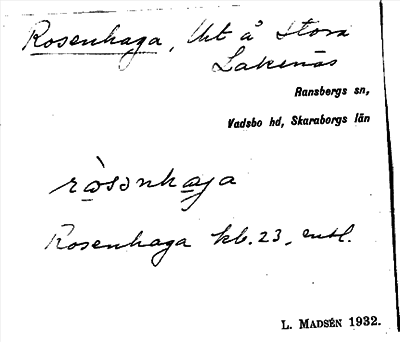 Rosenhaga, Uht å Stora
Lakenäs
Ransbergs sn,
Vadsbo hd, Skaraborgs län
rɷ̀sɘnhaga
Rosenhaga kb. 23, enl.
L. MADSÉN 1932.